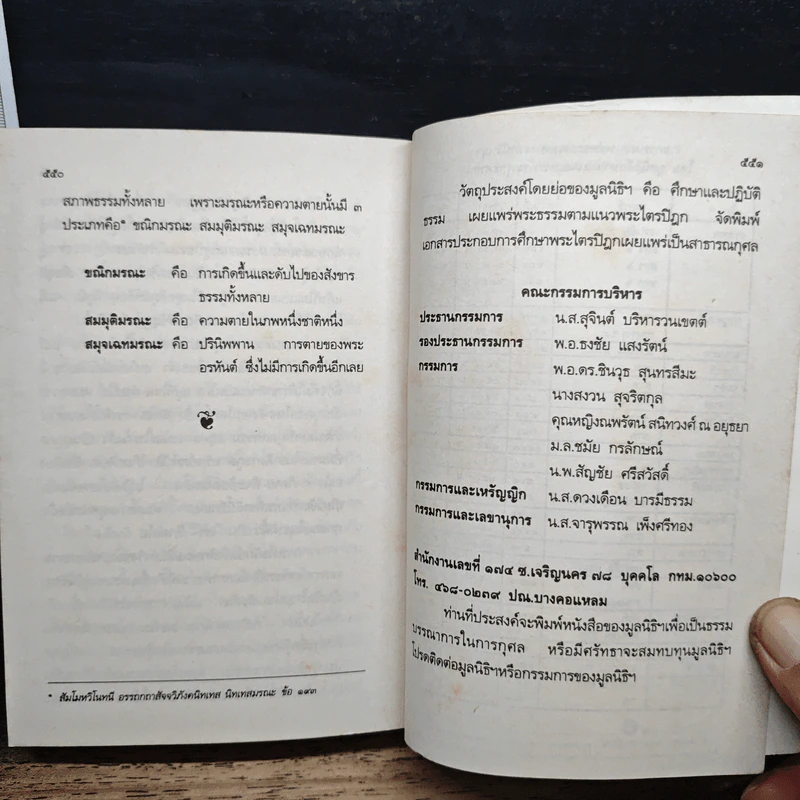 ๕๕๐
สภาพธรรมทั้งหลาย เพราะมรณะหรือความตายนั้นมี ๓
ประเภทคือ* ขณิกมรณะ สมมุติมรณะ สมุจเฉทมรณะ
ขณิกมรณะ คือ การเกิดขึ้นและดับไปของสังขาร
ธรรมทั้งหลาย
สมมุติมรณะ คือ ความตายในภพหนึ่งชาติหนึ่ง
สมุจเฉทมรณะ คือ ปรินิพพาน การตายของพระ
อรหันต์ ซึ่งไม่มีการเกิดขึ้นอีกเลย
* สัมโมหวิโนทนี อรรถกถาสัจจวิภังคนิทเทส นิทเทสมรณะ ข้อ ๑๙๓
๕๕๑
วัตถุประสงค์โดยย่อของมูลนิธิฯ คือ ศึกษาและปฏิบัติ
ธรรม เผยแพร่พระธรรมตามแนวพระไตรปิฎก จัดพิมพ์
เอกสารประกอบการศึกษาพระไตรปิฎกเผยแพร่เป็นสาธารณกุศล
คณะกรรมการบริหาร
ประธานกรรมการ น.ส.สุจินต์ บริหารวนเขตต์
รองประธานกรรมการ พ.อ.ธงชัย แสงรัตน์
กรรมการ พ.อ.ดร.ชินวุธ สุนทรสีมะ
นางสงวน สุจริตกุล
คุณหญิงณพรัตน์ สนิทวงศ์ ณ อยุธยา
ม.ล.ชมัย กรลักษณ์
น.พ.สัญชัย ศรีสวัสดิ์
กรรมการและเหรัญญิก น.ส.ดวงเดือน บารมีธรรม
กรรมการและเลขานุการ น.ส.จารุพรรณ เพ็งศรีทอง
สำนักงานเลขที่ ๑๗๔ ซ.เจริญนคร ๗๘ บุคคโล กทม.๑๐๖๐๐
โทร. ๔๖๘-๐๒๓๙ ปณ.บางคอแหลม
ท่านที่ประสงค์จะพิมพ์หนังสือของมูลนิธิฯเพื่อเป็นธรรม
บรรณาการในการกุศล หรือมีศรัทธาจะสมทบทุนมูลนิธิฯ
โปรดติดต่อมูลนิธิฯหรือกรรมการของมูลนิธิฯ